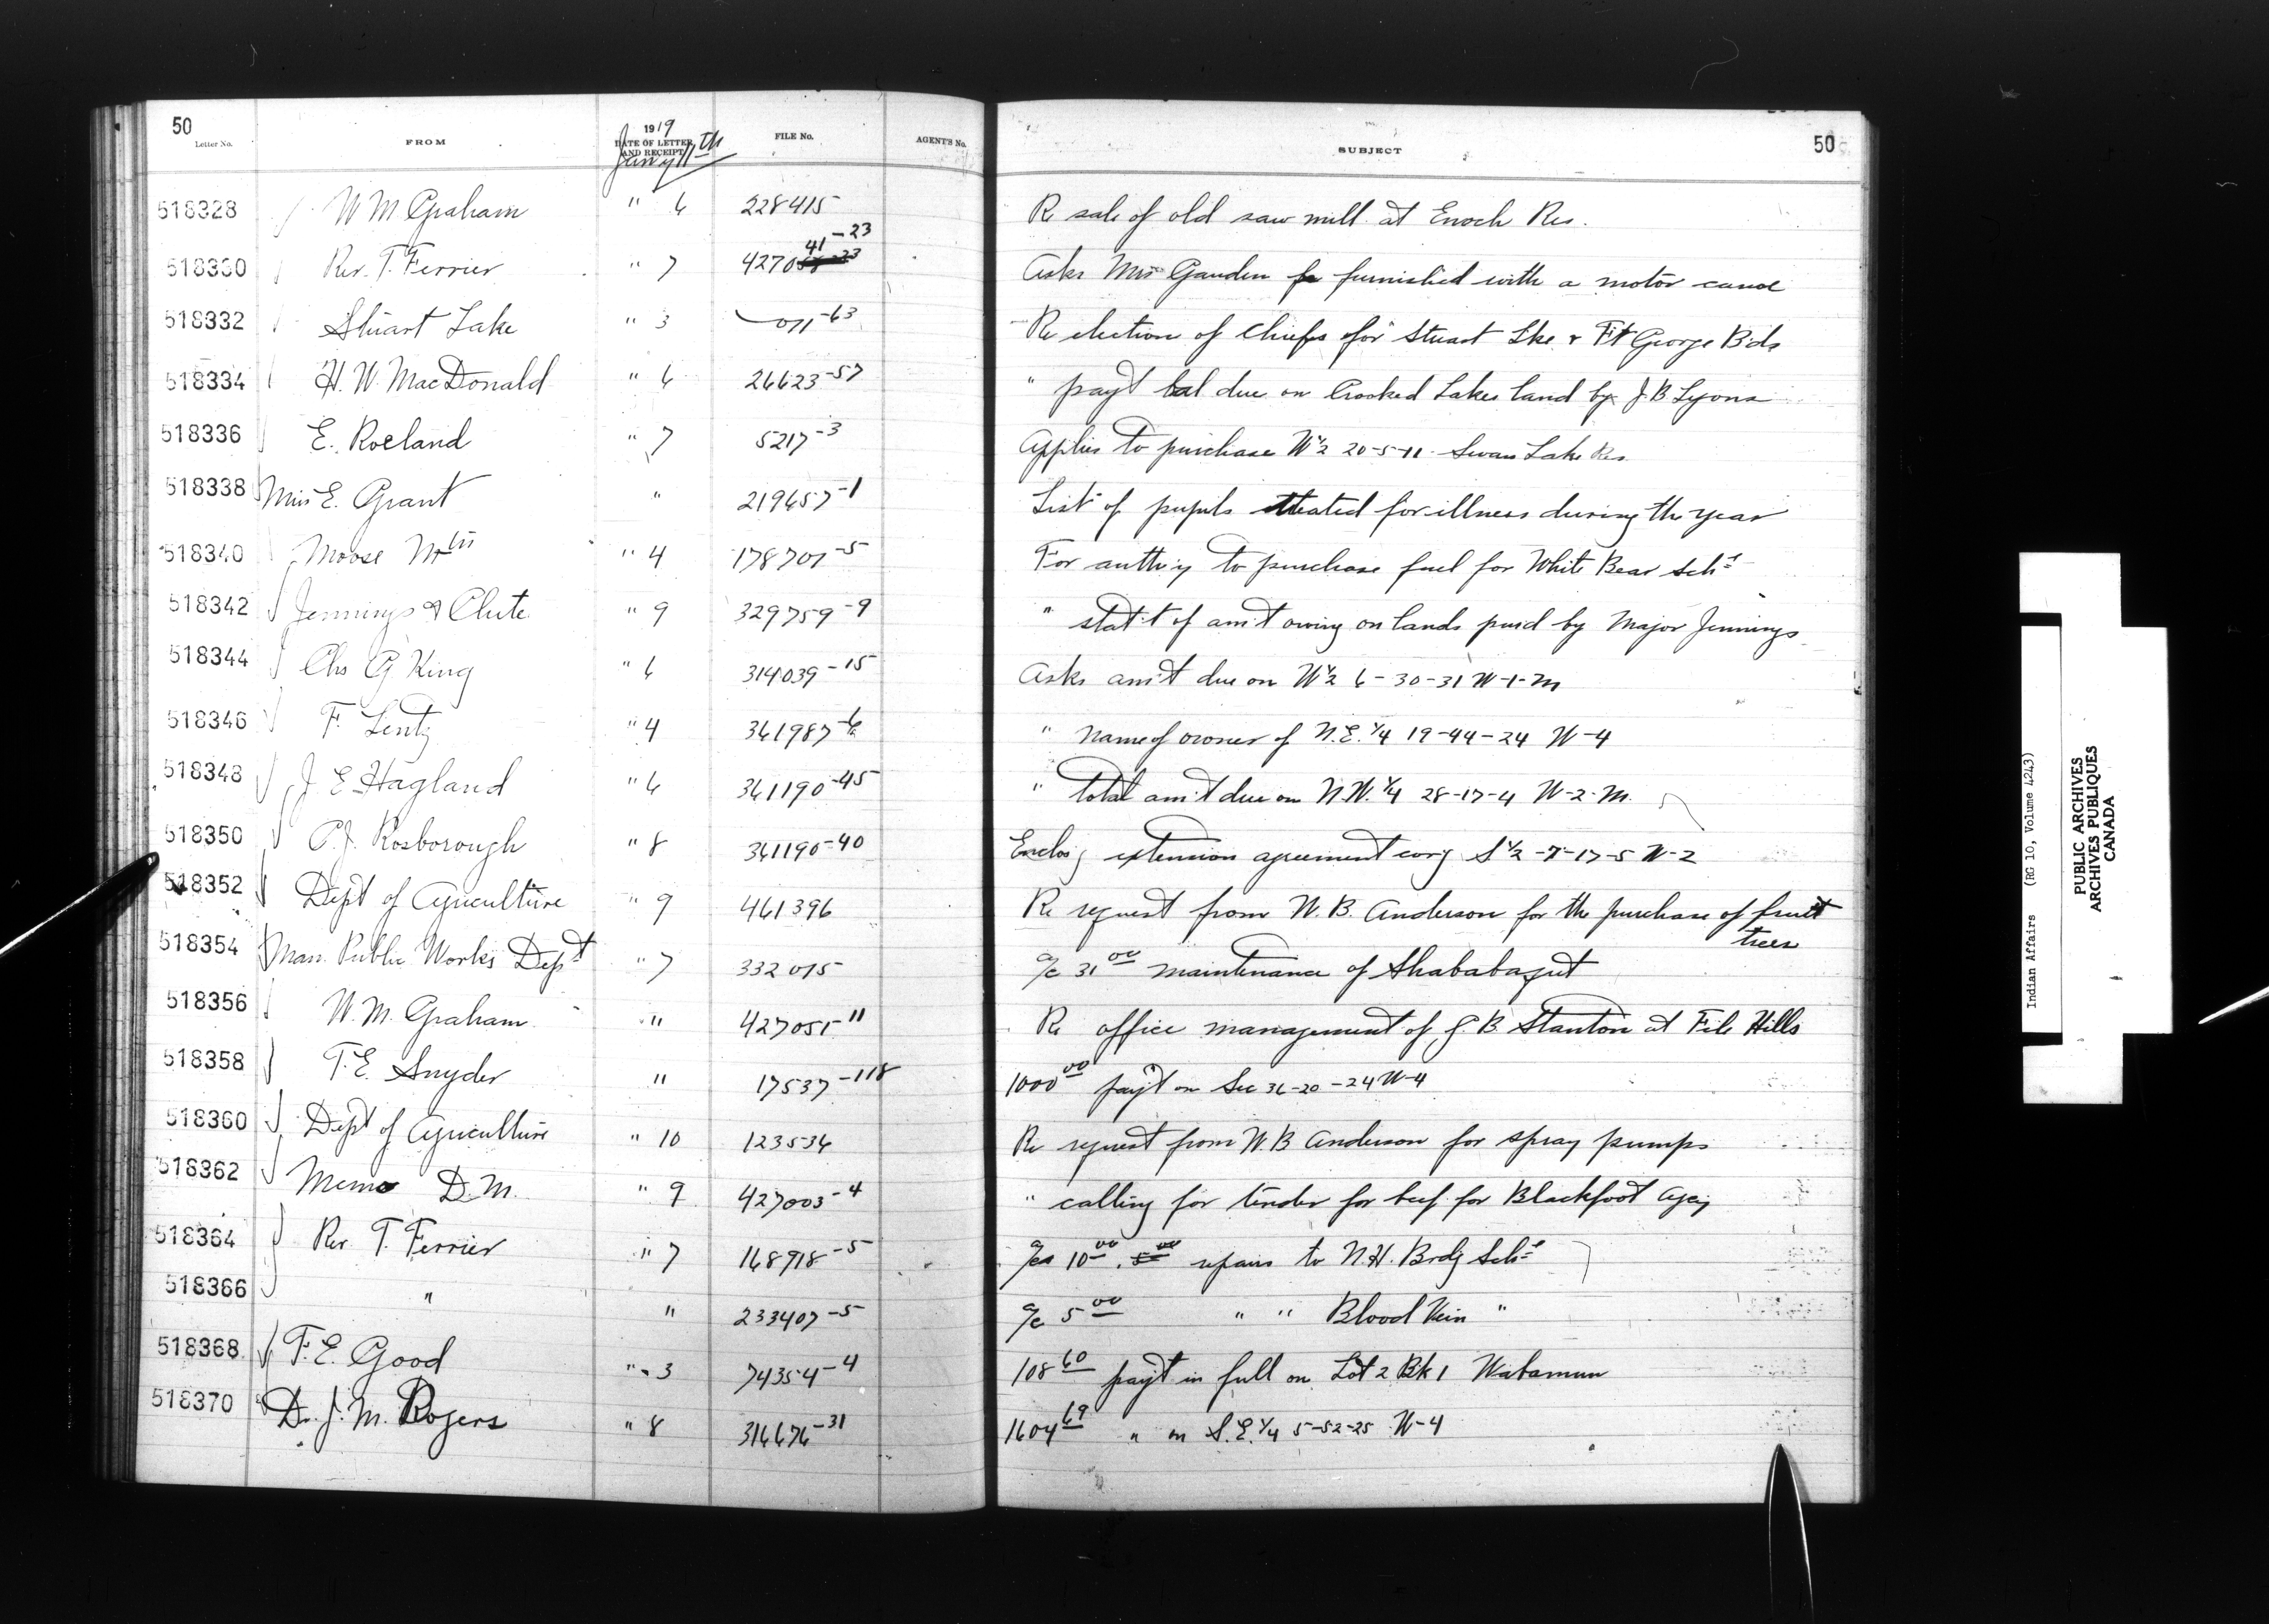 50 50
Letter No. FROM 1919 DATE OF LETTER AND RECEIPT FILE No. AGENT'S No. SUBJECT
Jan'y 11th
518328 W M Graham " 6 228415 Re sale of old saw mill at Enoch Res.
518330 Rev. T. Ferrier " 7 4270 41-23 Asks Mrs Gauden be furnished with a motor canoe
518332 Stuart Lake " 3 011-63 Re election of Chiefs for Stuart Lke & Ft George Bds
518334 H. W. MacDonald " 6 26623-57 " pay't bal due on Crooked Lakes land by J B Lyons
518336 E. Roeland " 7 5217-3 Applies to purchase W½ 20-5-11 Swan Lake Res.
518338 Miss E. Grant " 219657-1 List of pupils treated for illness during the year
518340 Moose Mtn " 4 178701-5 For auth'y to purchase fuel for White Bear Schl
518342 Jennings & Clute " 9 329759-9 " stat't of am't owing on lands purd by Major Jennings
518344 Chs A King " 6 314039-15 Asks am't due on W½ 6-30-31 W-1-M
518346 F. Lentz " 4 361987-6 " name of owner of N.E. ¼ 19-44-24 W-4
518348 J E Hagland " 6 361190-45 " total am't due on N.W. ¼ 28-17-4 W-2-M.
518350 C. J. Rosborough " 8 361190-40 Enclos'g extension agreement cov'g S½-7-17-5 W-2
518352 Dept of Agriculture " 9 461396 Re request from W. B. Anderson for the purchase of fruit
trees
518354 Man. Public Works Dept " 7 332015 a/c 31 00 maintenance of Shababagut
518356 W. M. Graham " 427051-11 Re office management of J. B. Stanton at File Hills
518358 T. E. Snyder " 17537-118 1000 00 pay't on Sec 36-20-24 W-4
518360 Dept of Agriculture " 10 123534 Re request from W. B Anderson for spray pumps
518362 Memo D.M. " 9 427003-4 " calling for tender for beef for Blackfoot Agcy
518364 Rev T. Ferrier " 7 168918-5 a/cs 10 00. 5 00 repairs to N.H. Brdg Schl
518366 " " 233407-5 a/c 5 00 " " Blood Vein "
518368 F. E. Good " 3 74354-4 108 60 pay't in full on Lot 2 Bk 1 Wabamun
518370 Dr. J. M. Rogers " 8 314676-31 1604 69 " on S.E. ¼ 5-52-25 W-4
Indian Affairs (RG 10, Volume 4243)
PUBLIC ARCHIVES
ARCHIVES PUBLIQUES
CANADA